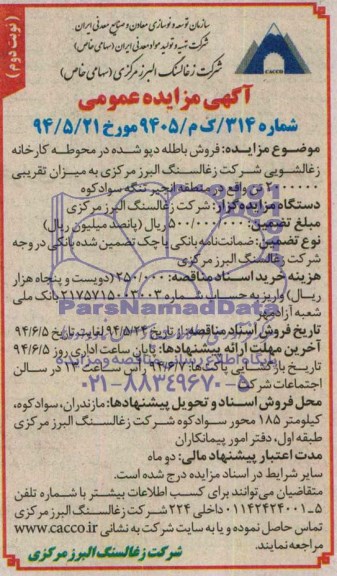 (نوبت دوم)
سازمان توسعه و نوسازی معادن و صنایع معدنی ایران
شرکت تهیه و تولید مواد معدنی ایران (سهامی خاص)
شرکت زغالسنگ البرز مرکزی (سهامی خاص)
CACCO
آگهی مزایده عمومی
شماره ۳۱۴/ک م/۹۴۰۵ مورخ ۹۴/۵/۲۱
موضوع مزایده: فروش باطله دپو شده در محوطه کارخانه
زغالشویی شرکت زغالسنگ البرز مرکزی به میزان تقریبی
تن واقع در منطقه انجیر تنگه سوادکوه
دستگاه مزایده گزار: شرکت زغالسنگ البرز مرکزی
مبلغ تضمین: ۵۰۰/۰۰۰/۰۰۰ ریال (پانصد میلیون ریال)
نوع تضمین: ضمانت نامه بانکی یا چک تضمین شده بانکی در وجه
شرکت زغالسنگ البرز مرکزی
هزینه خرید اسناد مناقصه: ۲۵۰/۰۰۰ (دویست و پنجاه هزار
ریال) واریز به حساب شماره ۲۱۷۵۷۱۵۰۰۳۰۰۳ بانک ملی
شعبه آزادمهر
تاریخ فروش اسناد مناقصه: از تاریخ ۹۴/۵/۲۴ لغایت تاریخ ۹۴/۶/۵
آخرین مهلت ارائه پیشنهادها: تا پایان ساعت اداری روز ۹۴/۶/۵
تاریخ بازگشایی پاکت‌ها: ۹۴/۶/۷ رأس ساعت ۱۲ در سالن
اجتماعات شرکت
ParsNamadData
پایگاه اطلاع رسانی مناقصه و مزایده
۰۲۱-۸۸۳۴۹۶۷۰-۵
محل فروش اسناد و تحویل پیشنهادها: مازندران، سوادکوه،
کیلومتر ۱۸۵ محور سوادکوه شرکت زغالسنگ البرز مرکزی
طبقه اول، دفتر امور پیمانکاران
مدت اعتبار پیشنهاد مالی: دو ماه
سایر شرایط در اسناد مزایده درج شده است.
متقاضیان می‌توانند برای کسب اطلاعات بیشتر با شماره تلفن
۵-۰۱۱۴۲۴۲۴۰۰۱ داخلی ۲۲۴ شرکت زغالسنگ البرز مرکزی
تماس حاصل نموده و یا به سایت شرکت به نشانی www.cacco.ir
مراجعه نمایند.
شرکت زغالسنگ البرز مرکزی